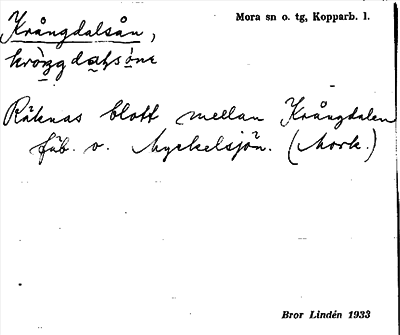 Krångdalsån,
Mora sn o. tg, Kopparb. l.
Räknas blott mellan Krångdalen
fäb. o. Myckelsjön. (Mork.)
Bror Lindén 1933